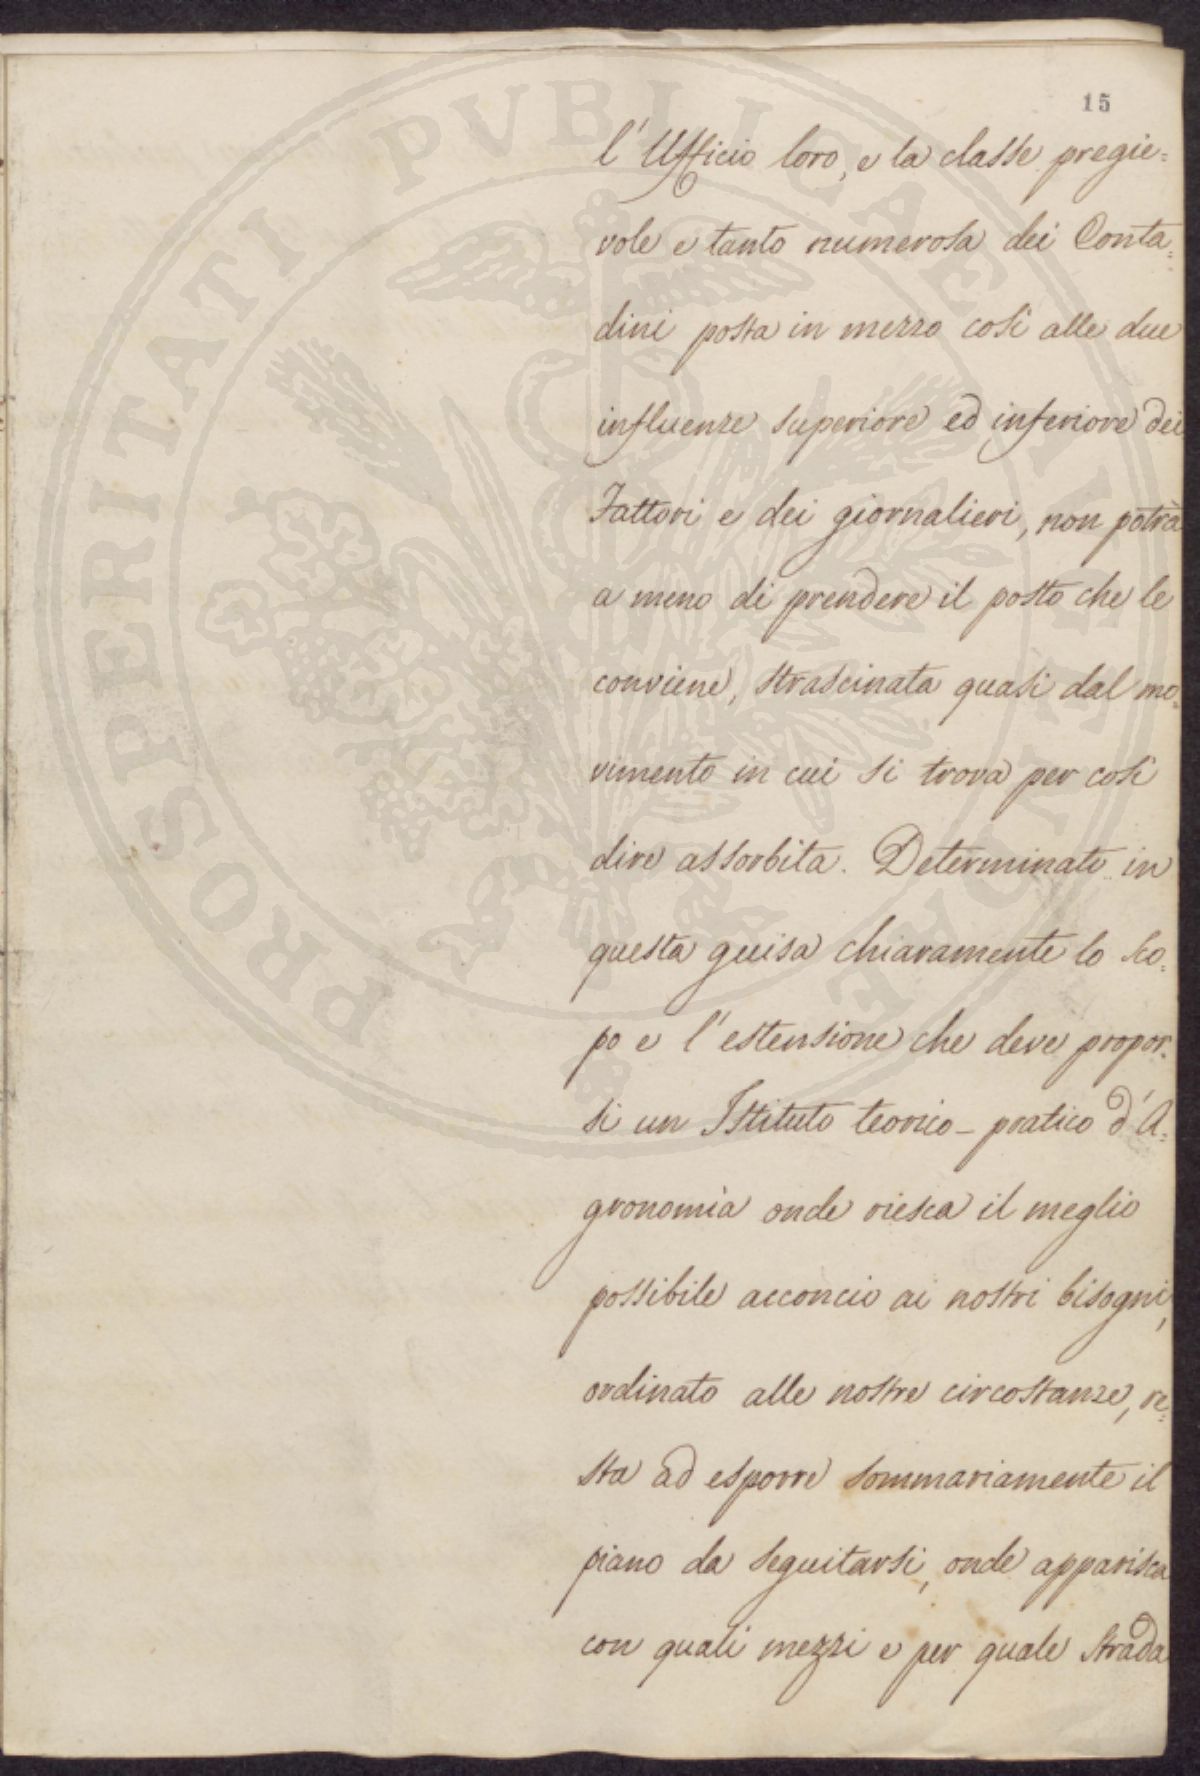 15
l'Ufficio loro, e la classe pregie=
vole e tanto numerosa dei Conta=
dini posta in mezzo così alle due
influenze superiore ed inferiore dei
Fattori e dei giornalieri, non potrà
a meno di prendere il posto che le
conviene, strascinata quasi dal mo=
vimento in cui si trova per così
dire assorbita. Determinato in
questa guisa chiaramente lo sco=
po e l'estensione che deve propor=
si un Istituto teorico-pratico d'A=
gronomia onde riesca il meglio
possibile acconcio ai nostri bisogni,
ordinato alle nostre circostanze, re=
sta ad esporre sommariamente il
piano da seguitarsi, onde apparisca
con quali mezzi e per quale strada
PROSPERITATI PVBLICAE